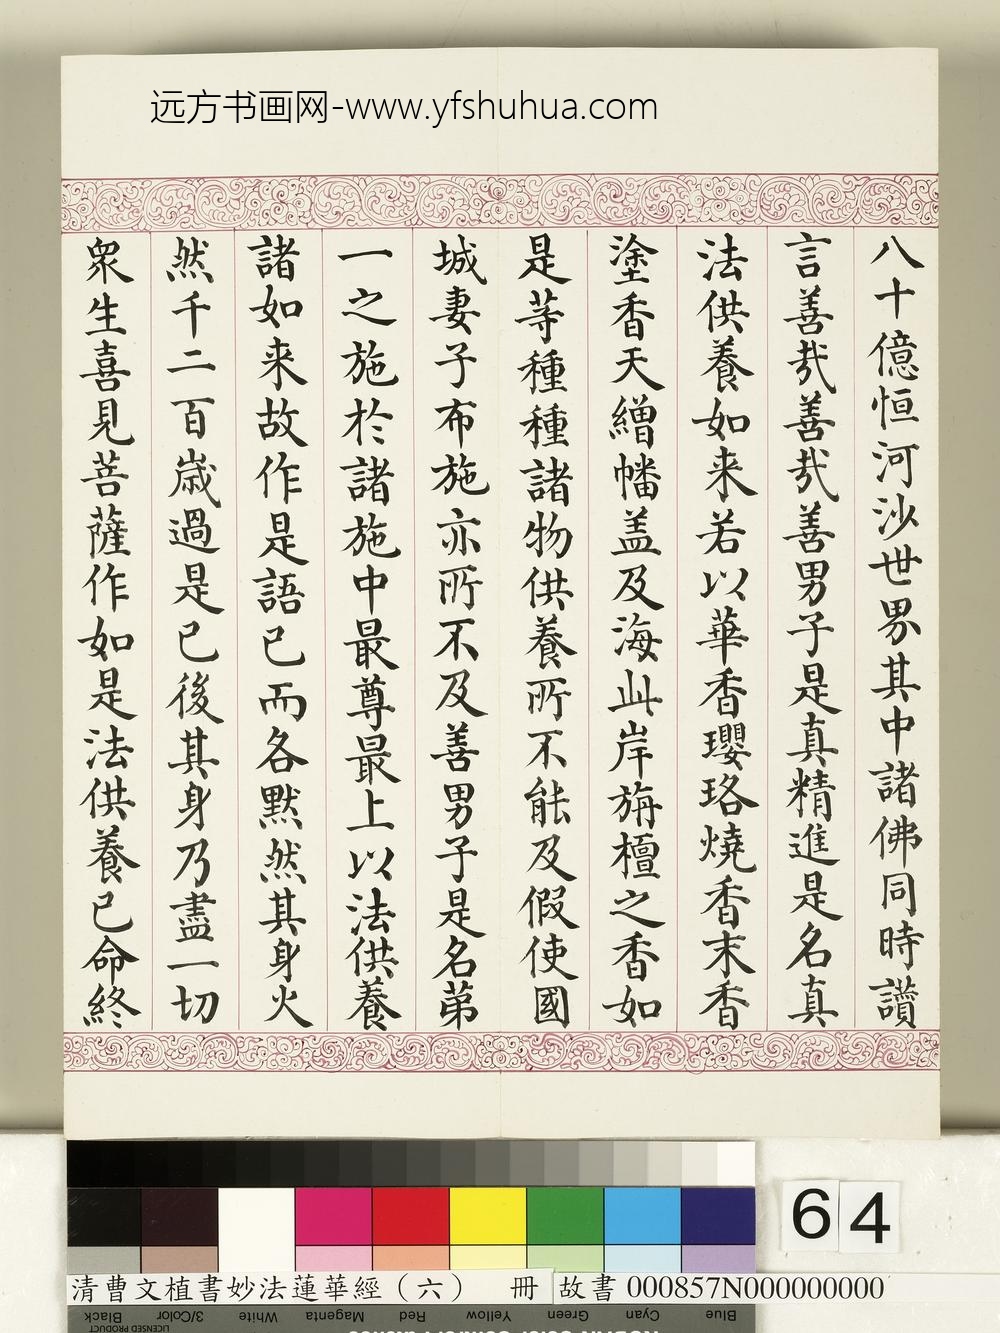 远方书画网-www.yfshuhua.com
八十億恒河沙世界其中諸佛同時讃
言善哉善哉善男子是真精進是名真
法供養如来若以華香瓔珞燒香末香
塗香天繒幡盖及海此岸旃檀之香如
是等種種諸物供養所不能及假使國
城妻子布施亦所不及善男子是名苐
一之施於諸施中最尊最上以法供養
諸如来故作是語已而各默然其身火
然千二百歳過是已後其身乃盡一切
衆生喜見菩薩作如是法供養已命終
64
清曹文植書妙法蓮華經（六） 冊 故書 000857N000000000
Blue Cyan Green Yellow Red Magenta White 3/Color Black
LICENSED PRODUCT